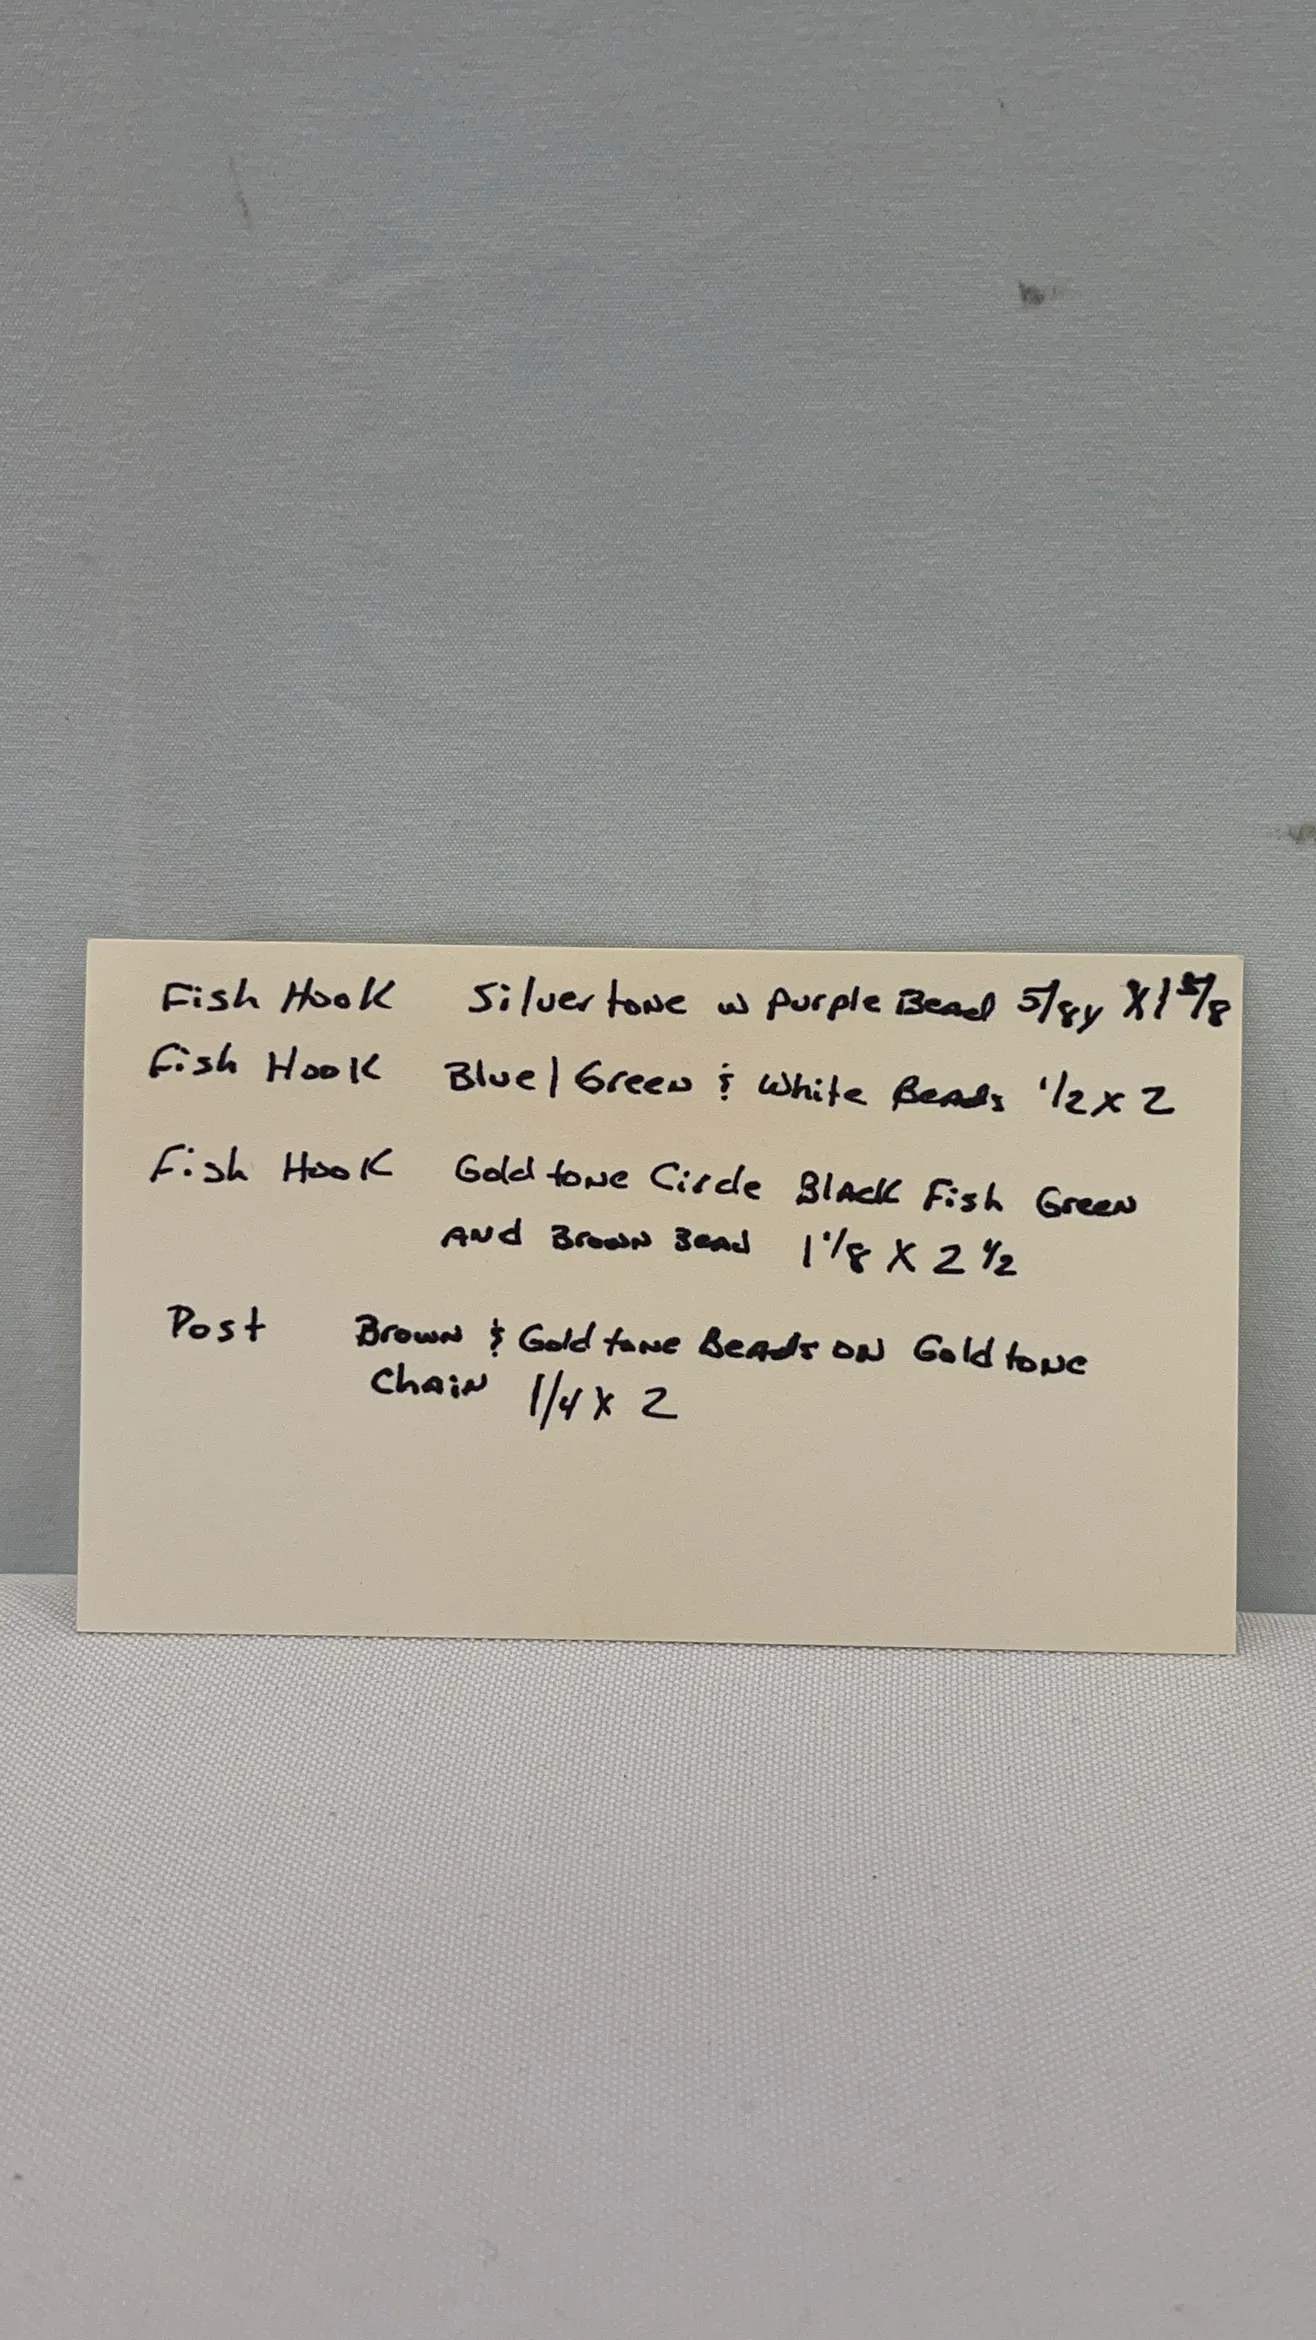 Fish Hook Silvertone w purple Bead 5/8y X 1 5/8
Fish Hook Blue/Green & White Beads 1/2 x 2
Fish Hook Goldtone Circle Black Fish Green
And Brown Bead 1 1/8 X 2 1/2
Post Brown & Goldtone Beads on Goldtone
Chain 1/4 X 2